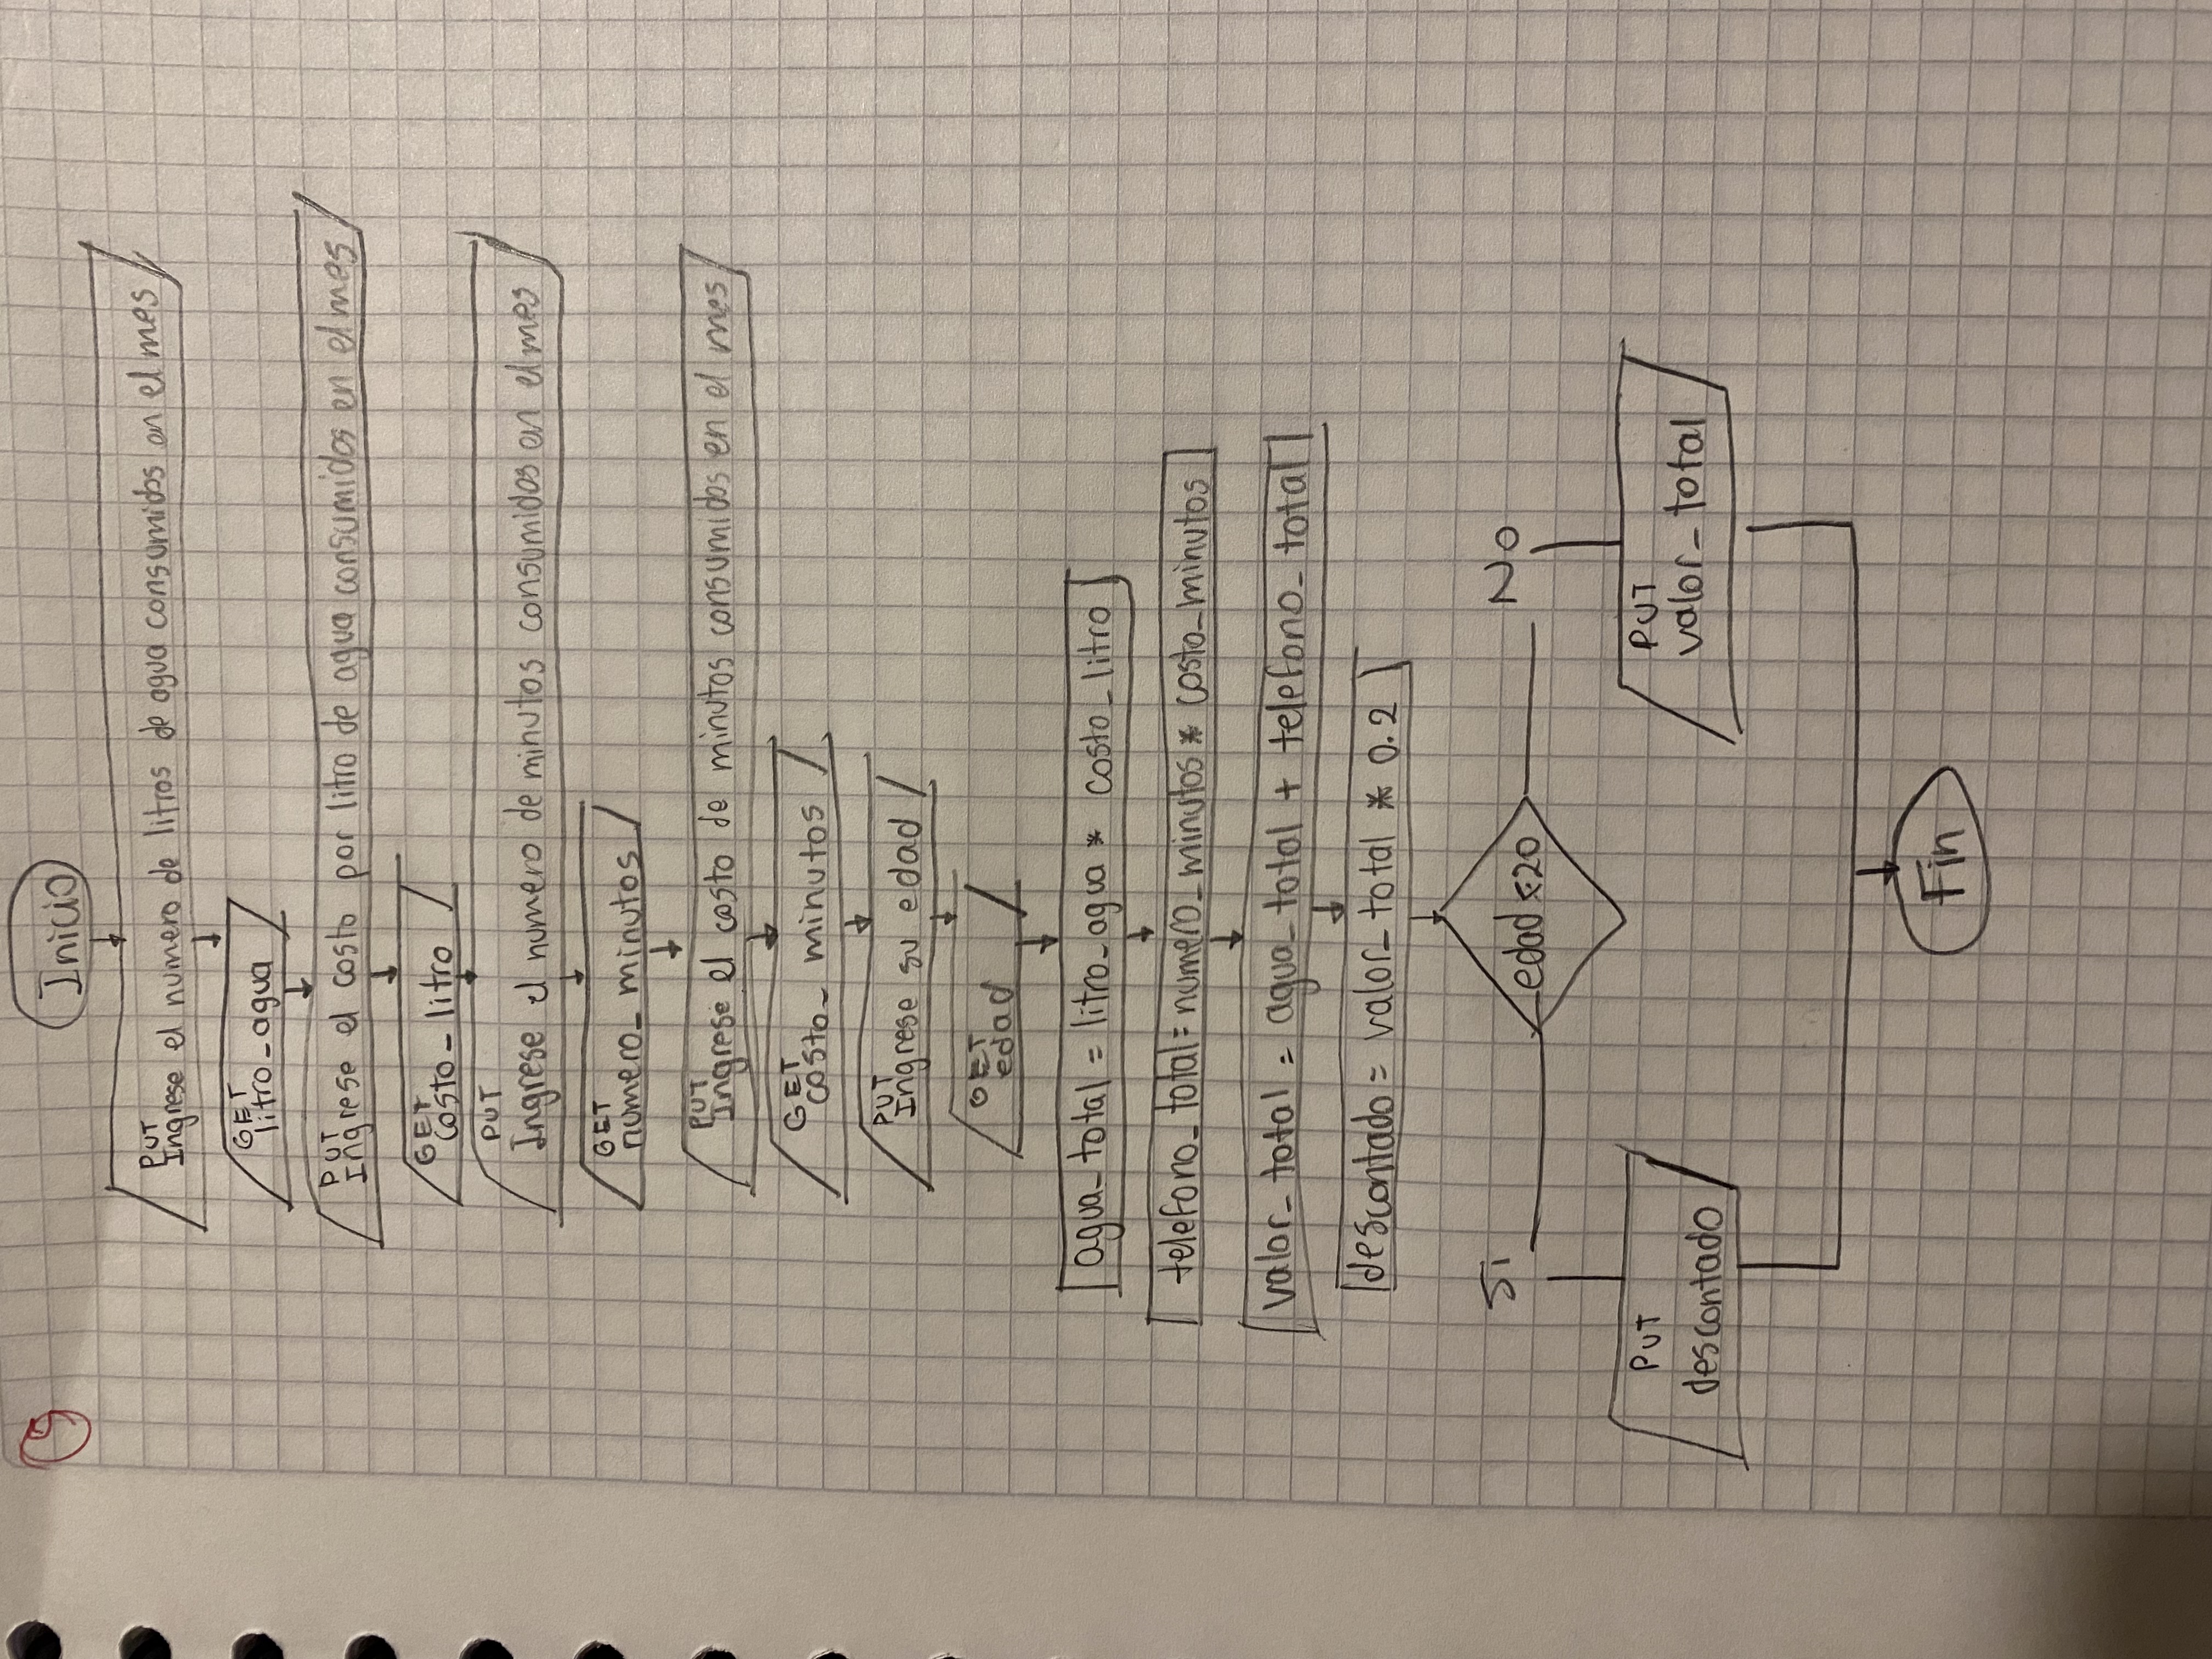 9
Inicio
PUT
Ingrese el numero de litros de agua consumidos en el mes
GET
litro_agua
PUT
Ingrese el costo por litro de agua consumidos en el mes
GET
costo_litro
PUT
Ingrese el numero de minutos consumidos en el mes
GET
numero_minutos
PUT
Ingrese el costo de minutos consumidos en el mes
GET
costo_minutos
PUT
Ingrese su edad
GET
edad
agua_total = litro_agua * costo_litro
telefono_total = numero_minutos * costo_minutos
valor_total = agua_total + telefono_total
descontado = valor_total * 0.2
Si
edad ≤ 20
No
PUT
descontado
PUT
valor_total
Fin